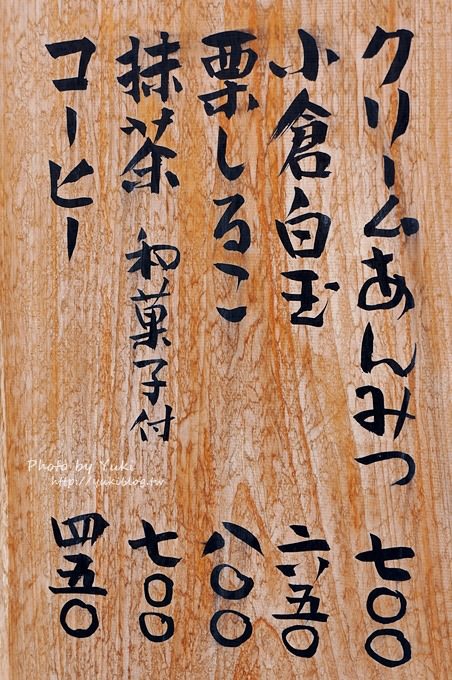 クリームあんみつ 七〇〇
小倉白玉 六五〇
栗しるこ 八〇〇
抹茶 和菓子付 七〇〇
コーヒー 四五〇
Photo by Yuki
http://yukiblog.tw